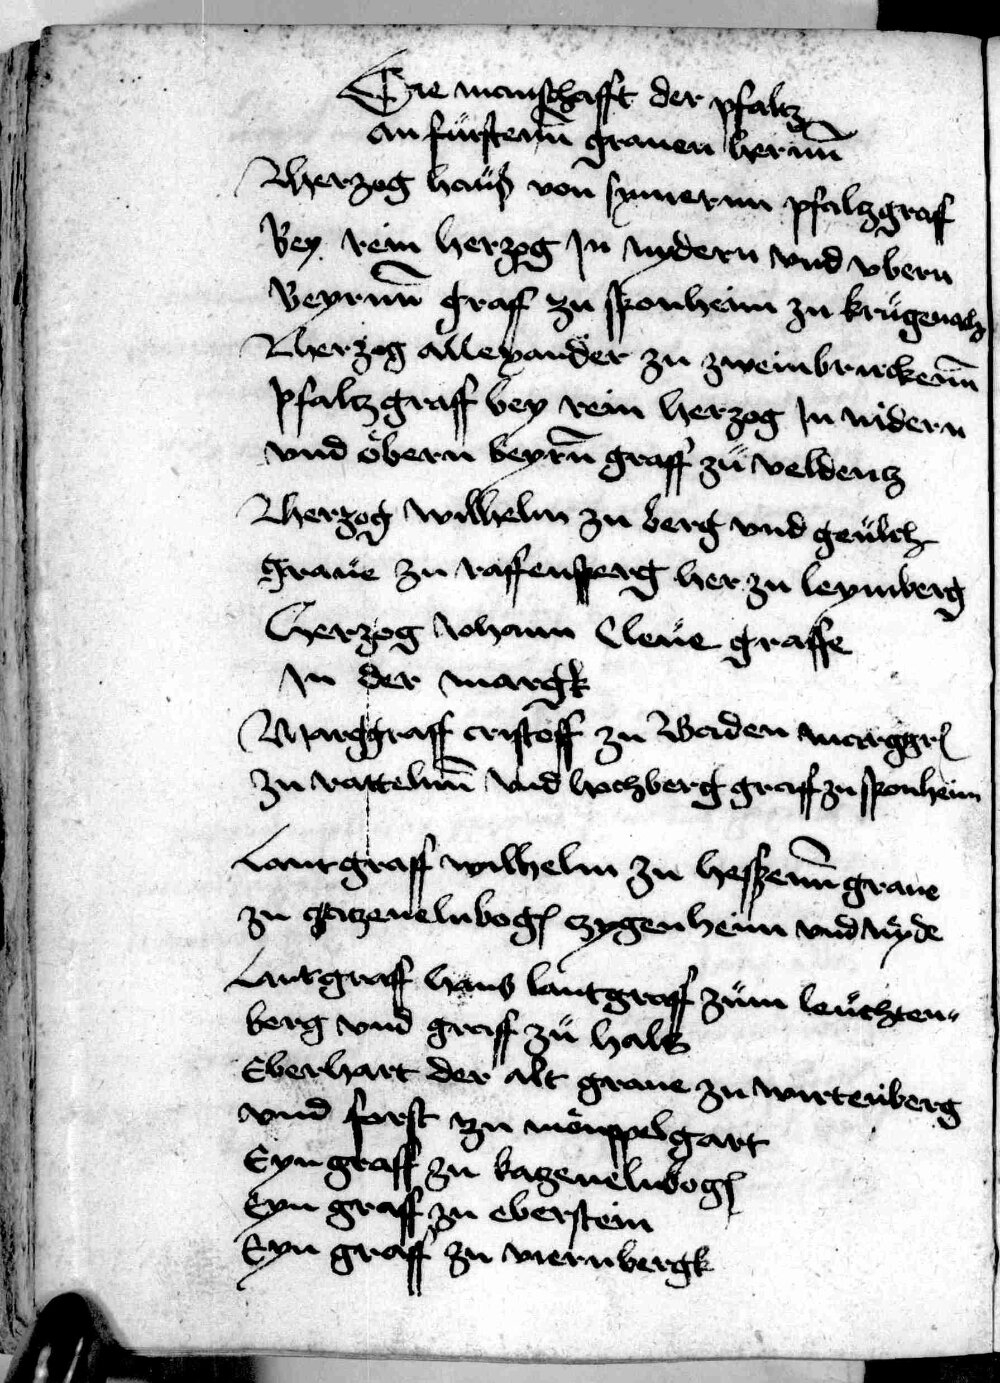 Die manschafft der pfaltz
an fürstenn grauen hernn
Herzog hanß von symernn pfaltzgraf
Bey rein herzog In nydern vnd obern
Beyrnn graff zu sponheim zu krügenach
Herzog allexander zu zweinbruckenn
pfaltzgraff bey rein herzog In nidern
vnd öbern beyrn graff zü veldentz
Herzog wilhelm zu berg vnd geülch
graue zu raffensperg her zu leymberg
Herzog Johann Cleue graffe
In der margk
Marggraff cristoff zu Baden marggr
zu rattelnn vnd hochberg graff zu sponheim
Lantgraff wilhelm zu hessenn graue
zu catzenelnbog zygenheim vnd nyde
Lantgraff hans lantgraff züm leüchten-
berg vnd graff zü hals
Eberhart der alt graue zu wirtenberg
vnd forst zu mömppelgart
Eyn graff zu katzenelnbog
Eyn graff zu eberstein
Eyn graff zu viernbergk